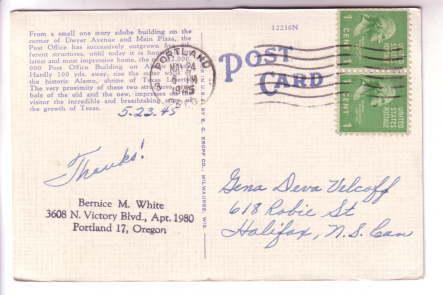 From a small one story adobe building on the
corner of Dwyer Avenue and Main Plaza, the
Post Office has successively outgrown
terations, until today it is
latest and most impressive home, the
000 Post Office Building on
Hardly 100 yds. away, rise the
the historic Alamo, shrine of Texas Liberty.
The very proximity of these two structures,
bols of the old and the new, impresses
visitor the incredible and breathtaking
the growth of Texas.
5-23-45
Thanks!
Bernice M. White
3608 N. Victory Blvd., Apt. 1980
Portland 17, Oregon
PORTLAND
MAY 24
5 PM
1945
E. C. KROPP CO., MILWAUKEE, WIS.
12216N
POST
CARD
1 CENT 1
UNITED
STATES
POSTAGE
1 CENT 1
UNITED
STATES
POSTAGE
Gena Deva Velcoff
618 Robie St
Halifax, N.S. Can